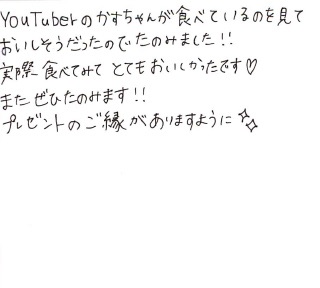 YouTuberのかすちゃんが食べているのを見て
おいしそうだったのでたのみました!!
実際食べてみてとてもおいしかったです♡
またぜひたのみます!!
プレゼントのご縁がありますように✨